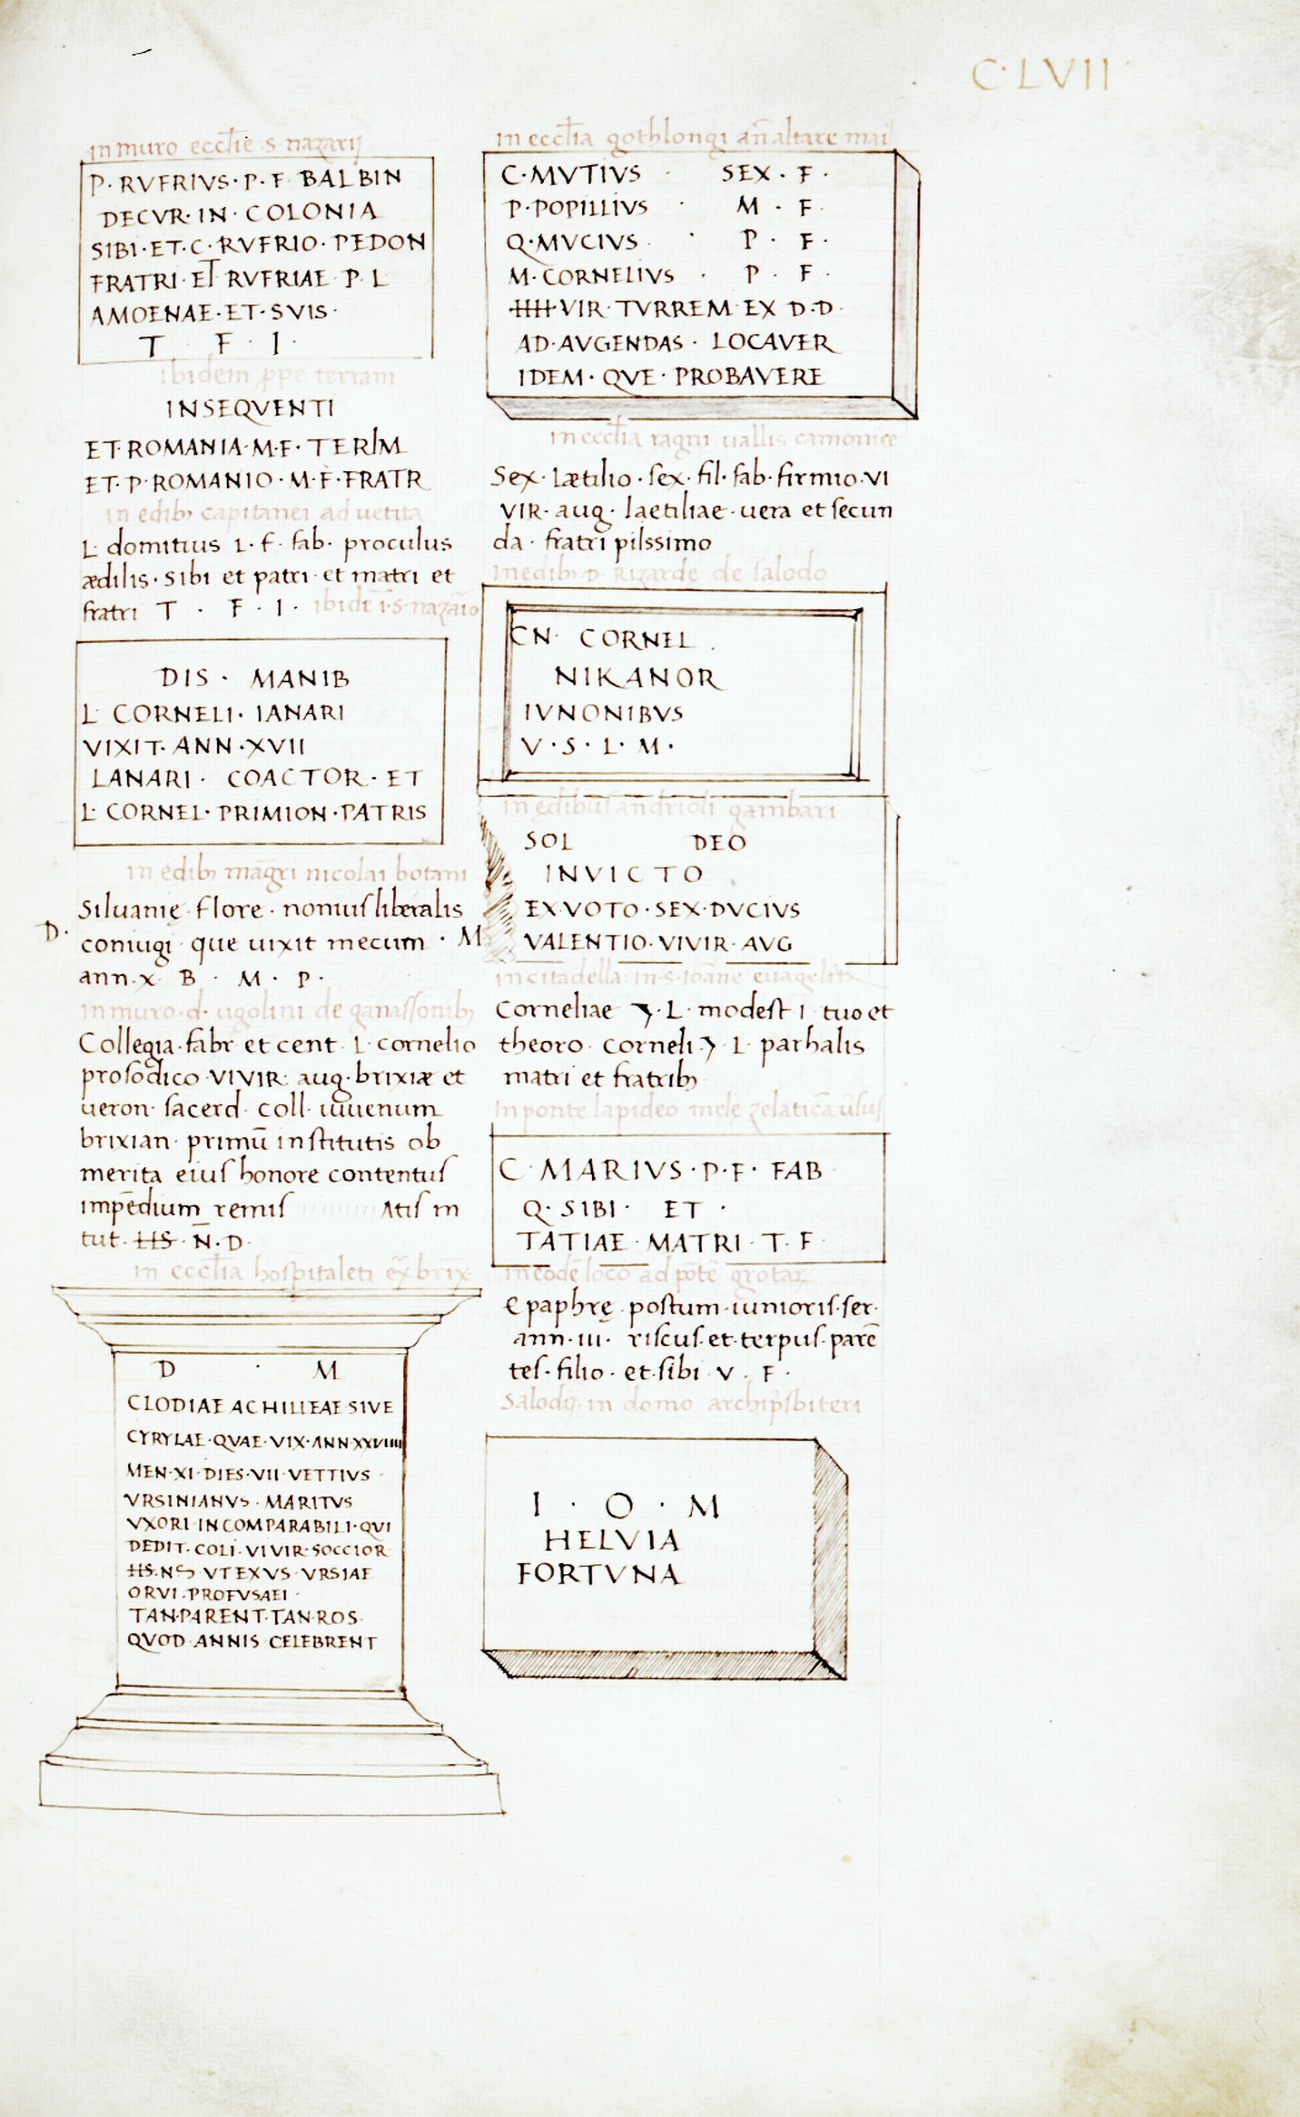 C·LVII
in muro eccl̄ie·s·nazarij
P·RVFRIVS·P·F·BALBIN
DECVR·IN·COLONIA
SIBI·ET·C·RVFRIO·PEDON
FRATRI·ET RVFRIAE P·L
AMOENAE·ET·SVIS·
T · F · I ·
ibidem ꝓpe terram
INSEQVENTI
ET·ROMANIA·M·F·TERIM
ET·P·ROMANIO·M·F·FRATR
in edibꝫ capitanei ad uetita
L· domitius L·f·fab· proculus
ædilis·sibi et patri et matri et
fratri T · F · I · ibidē ī·s·nazaīo
DIS · MANIB
L· CORNELI· IANARI
VIXIT·ANN·XVII
LANARI· COACTOR·ET
L· CORNEL·PRIMION·PATRIS
in edibꝫ magr̄i nicolai botani
Siluanię flore·nonius liberalis
D· coniugi que uixit mecum · M
ann·x B · M · P ·
in muro·d·ugolini de ganassonibꝫ
Collegia·fabr et cent L·cornelio
prosodico·VIVIR aug·brixiæ et
ueron· sacerd coll· iuuenum
brixian·primū institutis ob
merita eius honore contentus
impēdium remis Atis in
tut·HS·N̄·D·
in eccl̄ia hospitaleti ex̄ brix̄·
D · M
CLODIAE ACHILLEAE SIVE
CYRYLAE·QVAE·VIX·ANN·XXVIIII
MEN·XI·DIES·VII·VETTIVS
VRSINIANVS·MARITVS
VXORI·INCOMPARABILI·QVI
DEDIT·COLL·VIVIR·SOCCIOR
HS·N VTEXVS VRSIAE
ORVI·PROFVSAEI
TAN·PARENT·TAN·ROS
QVOD·ANNIS CELEBRENT
in eccl̄ia gothlongi an̄ altare mai
C·MVTIVS · SEX·F·
P·POPILLIVS · M·F·
Q·MVCIVS · P·F·
M·CORNELIVS · P·F·
IIIII·VIR·TVRREM EX D·D·
AD·AVGENDAS· LOCAVER
IDEM·QVE·PROBAVERE
in eccl̄ia ragni uallis camonice
Sex·lætilio·sex·fil·fab·firmio·VI
VIR·aug·laetiliae·uera et secun
da· fratri piissimo
In edibꝫ·D·Rizarde de salodo
CN· CORNEL
NIKANOR
IVNONIBVS
V·S·L·M·
in edibus andrioli gambari
SOL DEO
INVICTO
EX·VOTO·SEX·DVCIVS
VALENTIO·VIVIR·AVG
in citadella·in·s·ioāne euagelista
Corneliae ·L· modest I tuo et
theoro corneli· L· parhalis
matri et fratribꝫ
In ponte lapideo mele
C·MARIVS·P·F·FAB
Q·SIBI· ET ·
TATIAE·MATRI·T·F
in eodē loco ad pōtē
Epaphrę postum·iunioris·ser·
ann·iii· riscus·et·terpus·parē
tes·filio·et·sibi V·F·
Salodij in domo archipr̄sbiteri
I · O · M
HELVIA
FORTVNA